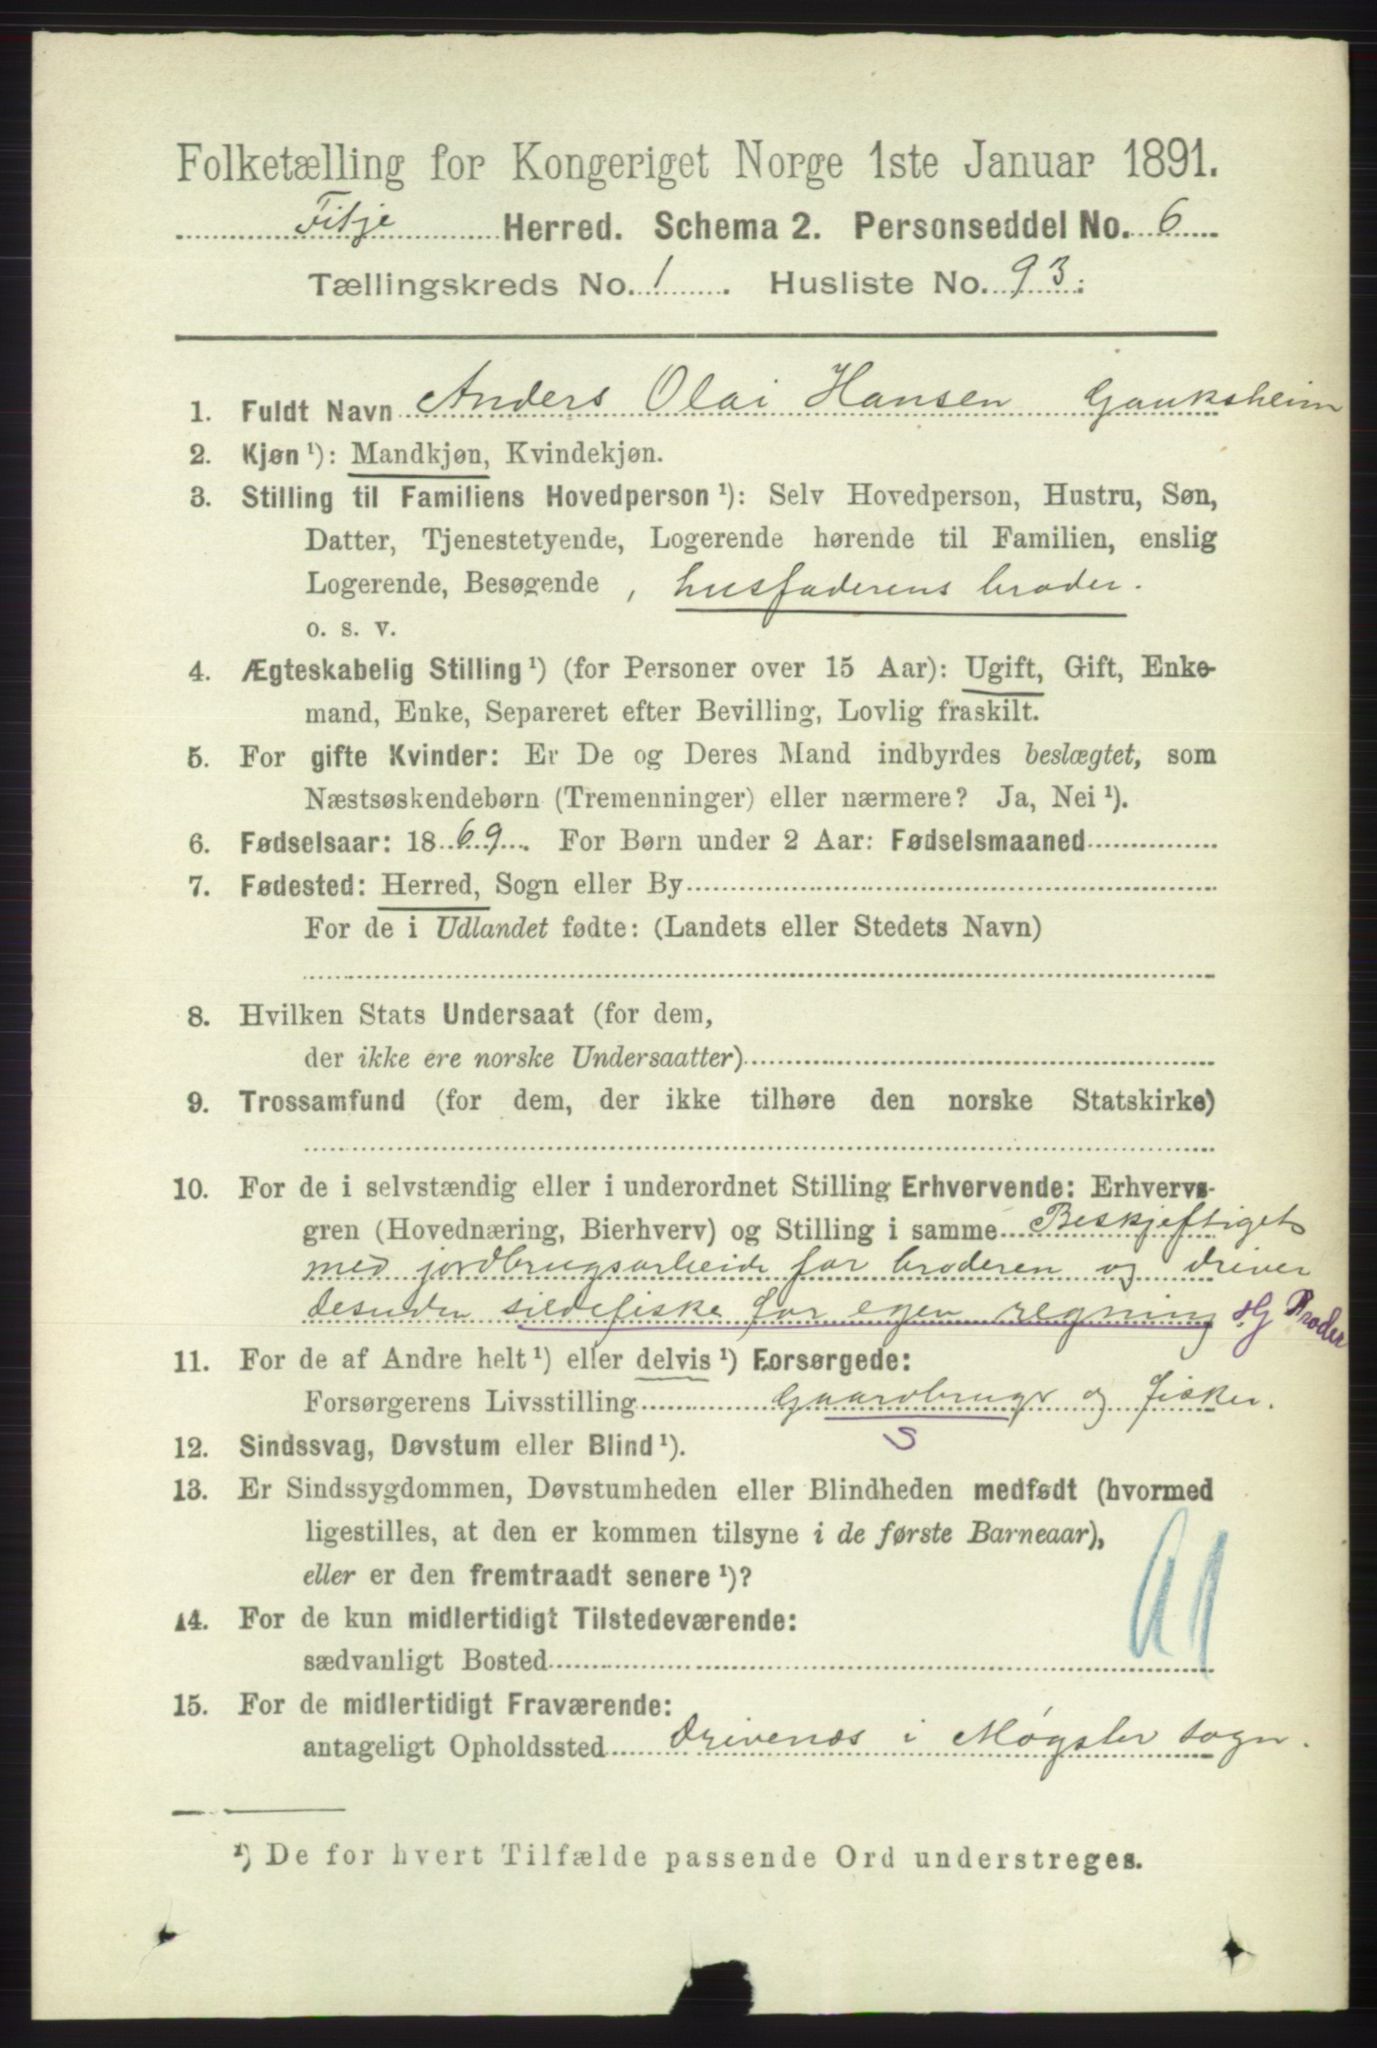 Folketælling for Kongeriget Norge 1ste Januar 1891.
Fitje Herred. Schema 2. Personseddel No. 6
Tællingskreds No. 1. Husliste No. 93.
1. Fuldt Navn Anders Olai Hansen Gauksheim
2. Kjøn ¹): Mandkjøn, Kvindekjøn.
3. Stilling til Familiens Hovedperson ¹): Selv Hovedperson, Hustru, Søn,
Datter, Tjenestetyende, Logerende hørende til Familien, enslig
Logerende, Besøgende, husfaderens broder.
o. s. v.
4. Ægteskabelig Stilling ¹) (for Personer over 15 Aar): Ugift, Gift, Enke-
mand, Enke, Separeret efter Bevilling, Lovlig fraskilt.
5. For gifte Kvinder: Er De og Deres Mand indbyrdes beslægtet, som
Næstsøskendebørn (Tremenninger) eller nærmere? Ja, Nei ¹).
6. Fødselsaar: 1869. For Børn under 2 Aar: Fødselsmaaned
7. Fødested: Herred, Sogn eller By
For de i Udlandet fødte: (Landets eller Stedets Navn)
8. Hvilken Stats Undersaat (for dem,
der ikke ere norske Undersaatter)
9. Trossamfund (for dem, der ikke tilhøre den norske Statskirke)
10. For de i selvstændig eller i underordnet Stilling Erhvervende: Erhvervs-
gren (Hovednæring, Bierhverv) og Stilling i samme Beskjeftiget
med jordbrugsarbeide for broderen og driver
desuden sildefiske for egen regning Hg Broder
11. For de af Andre helt ¹) eller delvis ¹) Forsørgede:
Forsørgerens Livsstilling Gaardbruger og fisker.
S
12. Sindssvag, Døvstum eller Blind ¹).
13. Er Sindssygdommen, Døvstumheden eller Blindheden medfødt (hvormed
ligestilles, at den er kommen tilsyne i de første Barneaar),
eller er den fremtraadt senere ¹)?
14. For de kun midlertidigt Tilstedeværende:
sædvanligt Bosted
15. For de midlertidigt Fraværende:
antageligt Opholdssted Drivenes i Møgster sogn.
¹) De for hvert Tilfælde passende Ord understreges.